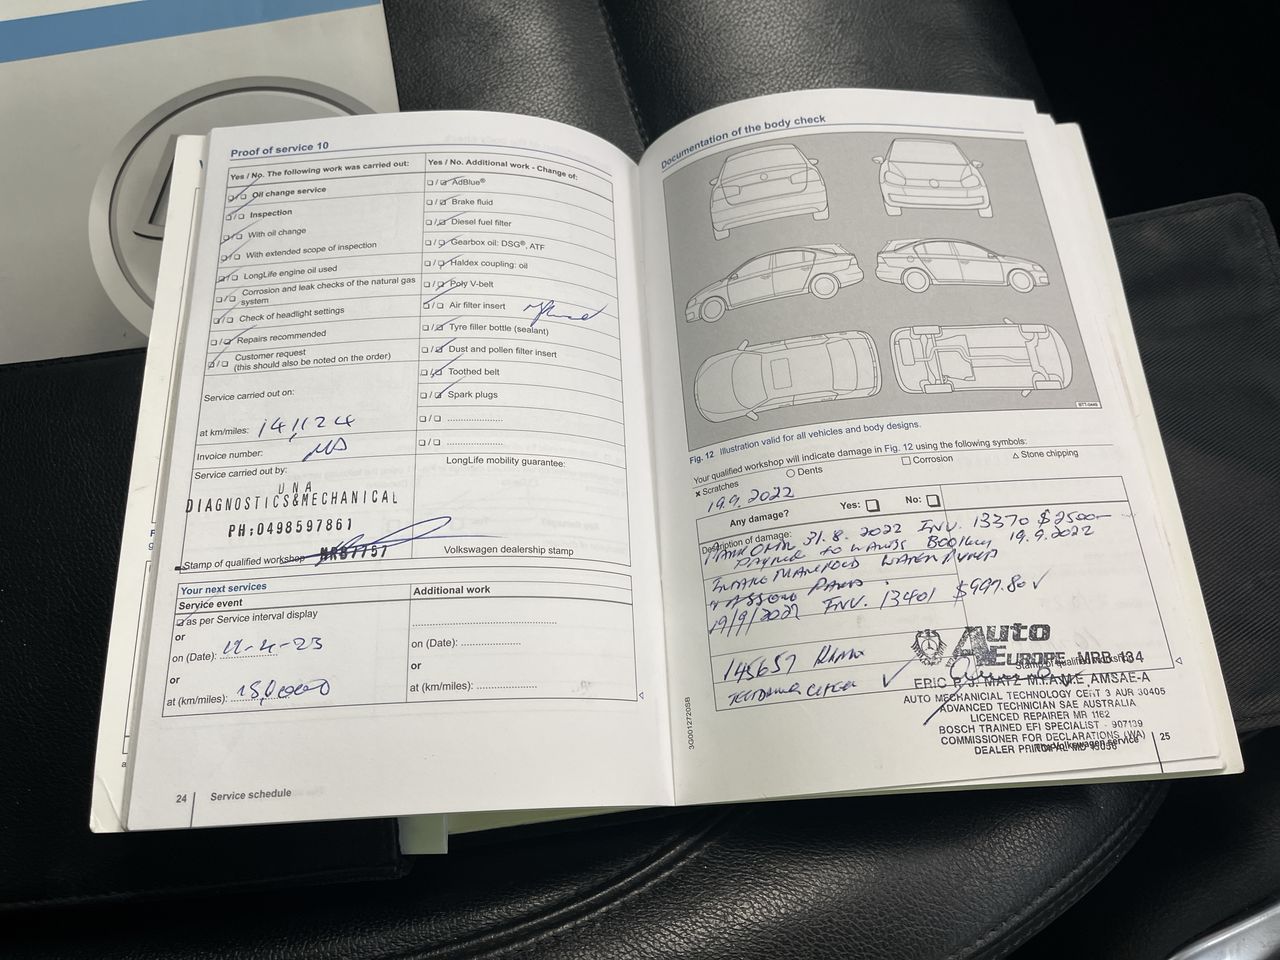 Proof of service 10
Yes / No. The following work was carried out:
❑/❑ Oil change service
❑/❑ Inspection
❑/❑ With oil change
❑/❑ With extended scope of inspection
❑/❑ LongLife engine oil used
❑/❑ Corrosion and leak checks of the natural gas
system
❑/❑ Check of headlight settings
❑/❑ Repairs recommended
❑/❑ Customer request
(this should also be noted on the order)
Service carried out on:
at km/miles: 141124
Invoice number:
Service carried out by:
UNA
DIAGNOSTICS&MECHANICAL
PH:0498597861
MRB7757
Stamp of qualified workshop
Yes / No. Additional work - Change of:
❑/❑ AdBlue®
❑/❑ Brake fluid
❑/❑ Diesel fuel filter
❑/❑ Gearbox oil: DSG®, ATF
❑/❑ Haldex coupling: oil
❑/❑ Poly V-belt
❑/❑ Air filter insert
❑/❑ Tyre filler bottle (sealant)
❑/❑ Dust and pollen filter insert
❑/❑ Toothed belt
❑/❑ Spark plugs
❑/❑ ....................
❑/❑ ....................
LongLife mobility guarantee:
Volkswagen dealership stamp
Your next services
Service event
❑ as per Service interval display
or
on (Date): 12-4-23
or
at (km/miles): 150,000
Additional work
on (Date): ....................
or
at (km/miles): ....................
24 Service schedule
Documentation of the body check
BTT-0449
Fig. 12 Illustration valid for all vehicles and body designs.
Your qualified workshop will indicate damage in Fig. 12 using the following symbols:
× Scratches ○ Dents □ Corrosion △ Stone chipping
19.9.2022
Any damage? Yes: ❑ No: ❑
Description of damage:
31.8.2022 INV. 13370 $2500-
19.9.2022
INTAKE MANIFOLD WATER PUMP
19/9/2022 INV. 13401 $997.80 ✓
145657
✓
Auto
EUROPE MRB 134
Stamp of qualified workshop
ERIC P.J. MATZ M.I.A.M.E AMSAE-A
AUTO MECHANICIAL TECHNOLOGY CERT 3 AUR 30405
ADVANCED TECHNICIAN SAE AUSTRALIA
LICENCED REPAIRER MR 1162
BOSCH TRAINED EFI SPECIALIST - 907139
COMMISSIONER FOR DECLARATIONS (WA)
DEALER PRINCIPAL
3G0012720SB
25